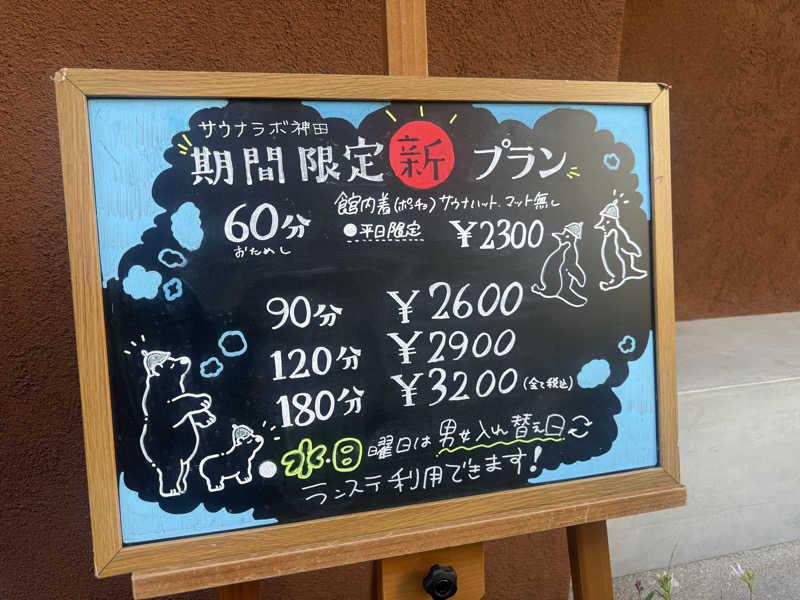 サウナラボ神田
期間限定新プラン
館内着(ポンチョ)サウナハット、マット無し
60分 ●平日限定 ¥2300
おためし
90分 ¥2600
120分 ¥2900
180分 ¥3200(全て税込)
水・日曜日は男女入れ替え日
ランステ利用できます!